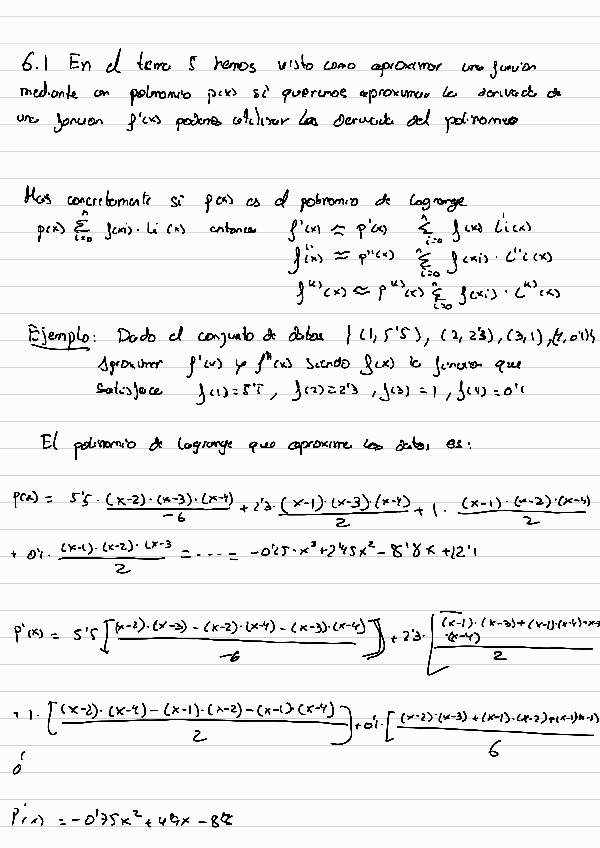 6.1 En el tema 5 hemos visto como aproximar una funcion
mediante un polinomio p(x) si queremos aproximar la derivada de
una funcion f'(x) podemos utilizar las derivada del polinomio
Mas concretamente si p(x) es el polinomio de lagrange
p(x) Σ_{i=0}^{n} f(xi) · Li (x) entonces f'(x) ≈ p'(x) Σ_{i=0}^{n} f(xi) L'i(x)
f''(x) ≈ p''(x) Σ_{i=0}^{n} f(xi) · L''i(x)
f^{(k)}(x) ≈ p^{(k)}(x) Σ_{i=0}^{n} f(xi) · L^{(k)}(x)
Ejemplo: Dado el conjunto de datos {(1, 5'5), (2, 2'3), (3, 1), (4, 0'1)}
Aproximar f'(x) y f''(x) siendo f(x) la funcion que
satisface f(1)=5'5, f(2)=2'3, f(3)=1, f(4)=0'1
El polinomio de lagrange que aproxima los datos es:
p(x) = 5'5 · (x-2)·(x-3)·(x-4)/-6 + 2'3 · (x-1)·(x-3)·(x-4)/2 + 1 · (x-1)·(x-2)·(x-4)/2
+ 0'1 · (x-1)·(x-2)·(x-3/2 = ---- = -0'25·x³+2'45x²-8'8x+12'1
p'(x) = 5'5 [(x-2)·(x-3)-(x-2)·(x-4)-(x-3)·(x-4)/-6] + 2'3 · [(x-1)·(x-3)+(x-1)·(x-4)+(x-3)
·(x-4)/2
+ 1 · [(x-2)·(x-4)-(x-1)·(x-2)-(x-1)·(x-4)/2] + 0'1 · [(x-2)·(x-3)+(x-1)·(x-2)+(x-1)(x-3)/6
p'(x) = -0'75x²+4'9x-8'8